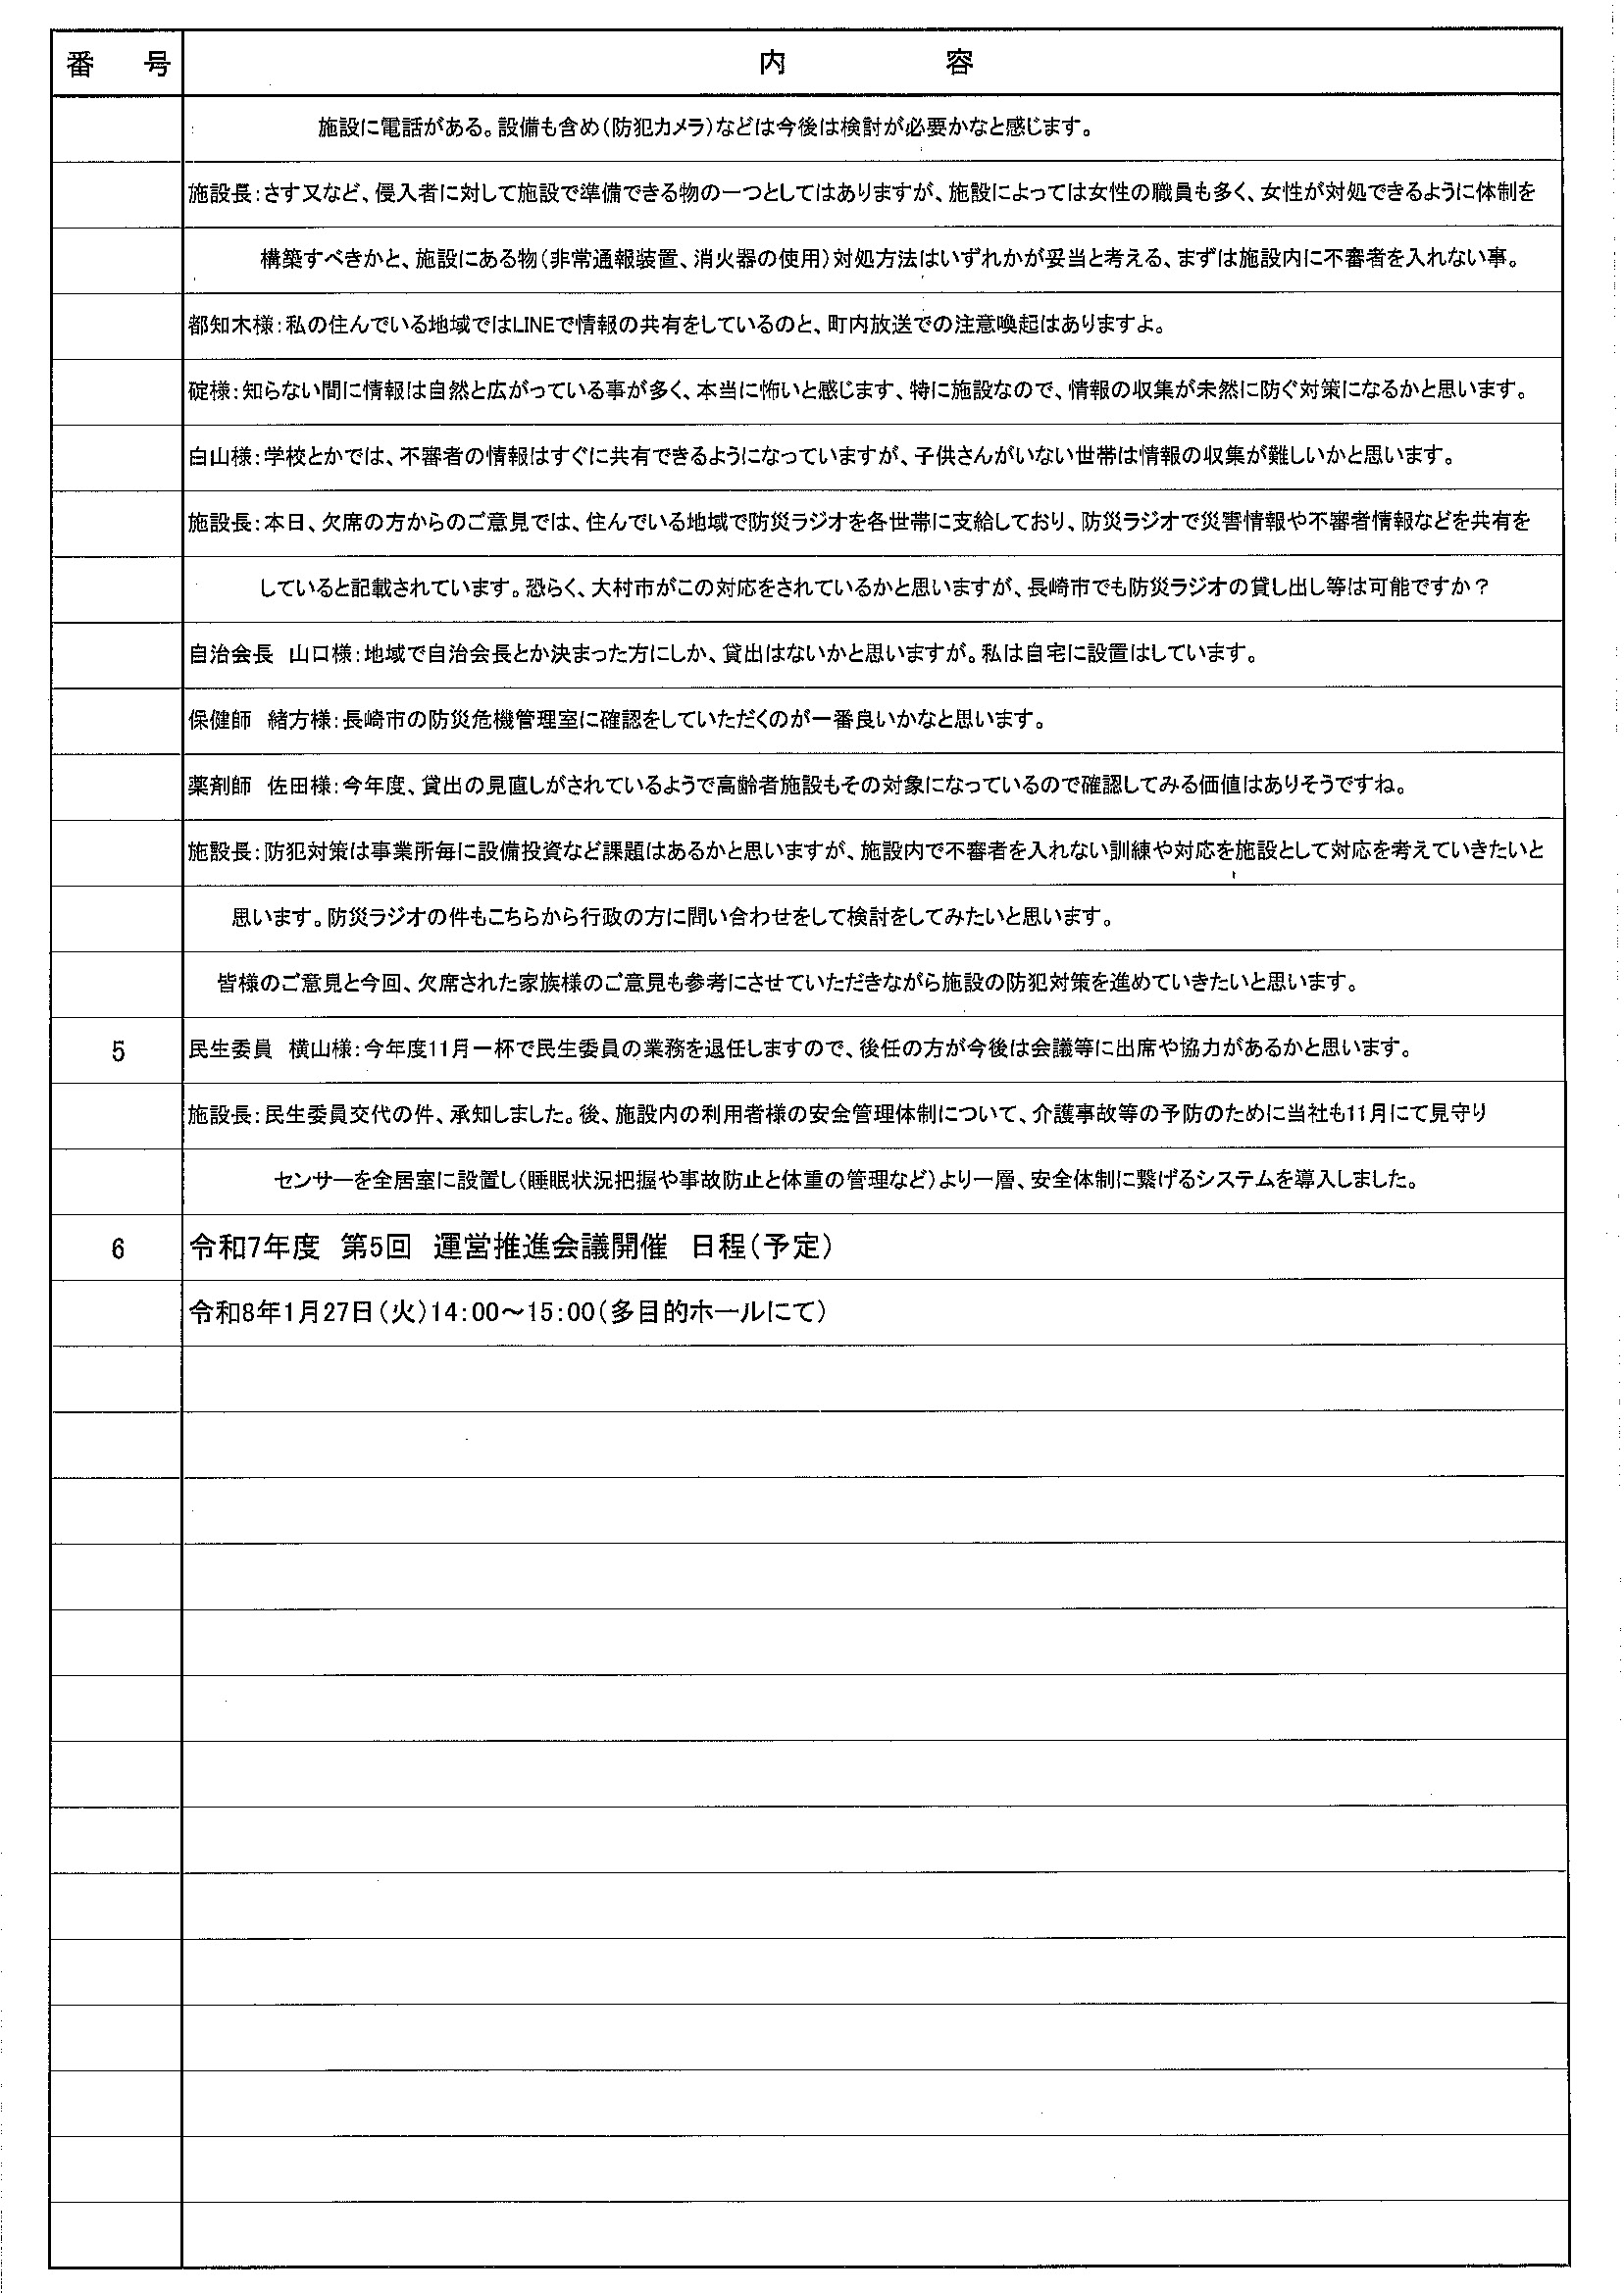 番　号　内　容
施設に電話がある。設備も含め（防犯カメラ）などは今後は検討が必要かなと感じます。
施設長：さす又など、侵入者に対して施設で準備できる物の一つとしてはありますが、施設によっては女性の職員も多く、女性が対処できるように体制を
構築すべきかと、施設にある物（非常通報装置、消火器の使用）対処方法はいずれかが妥当と考える、まずは施設内に不審者を入れない事。
都知木様：私の住んでいる地域ではLINEで情報の共有をしているのと、町内放送での注意喚起はありますよ。
碇様：知らない間に情報は自然と広がっている事が多く、本当に怖いと感じます、特に施設なので、情報の収集が未然に防ぐ対策になるかと思います。
白山様：学校とかでは、不審者の情報はすぐに共有できるようになっていますが、子供さんがいない世帯は情報の収集が難しいかと思います。
施設長：本日、欠席の方からのご意見では、住んでいる地域で防災ラジオを各世帯に支給しており、防災ラジオで災害情報や不審者情報などを共有を
していると記載されています。恐らく、大村市がこの対応をされているかと思いますが、長崎市でも防災ラジオの貸し出し等は可能ですか？
自治会長　山口様：地域で自治会長とか決まった方にしか、貸出はないかと思いますが。私は自宅に設置はしています。
保健師　緒方様：長崎市の防災危機管理室に確認をしていただくのが一番良いかなと思います。
薬剤師　佐田様：今年度、貸出の見直しがされているようで高齢者施設もその対象になっているので確認してみる価値はありそうですね。
施設長：防犯対策は事業所毎に設備投資など課題はあるかと思いますが、施設内で不審者を入れない訓練や対応を施設として対応を考えていきたいと
思います。防災ラジオの件もこちらから行政の方に問い合わせをして検討をしてみたいと思います。
皆様のご意見と今回、欠席された家族様のご意見も参考にさせていただきながら施設の防犯対策を進めていきたいと思います。
5　民生委員　横山様：今年度11月一杯で民生委員の業務を退任しますので、後任の方が今後は会議等に出席や協力があるかと思います。
施設長：民生委員交代の件、承知しました。後、施設内の利用者様の安全管理体制について、介護事故等の予防のために当社も11月にて見守り
センサーを全居室に設置し（睡眠状況把握や事故防止と体重の管理など）より一層、安全体制に繋げるシステムを導入しました。
6　令和7年度　第5回　運営推進会議開催　日程（予定）
令和8年1月27日（火）14：00～15：00（多目的ホールにて）